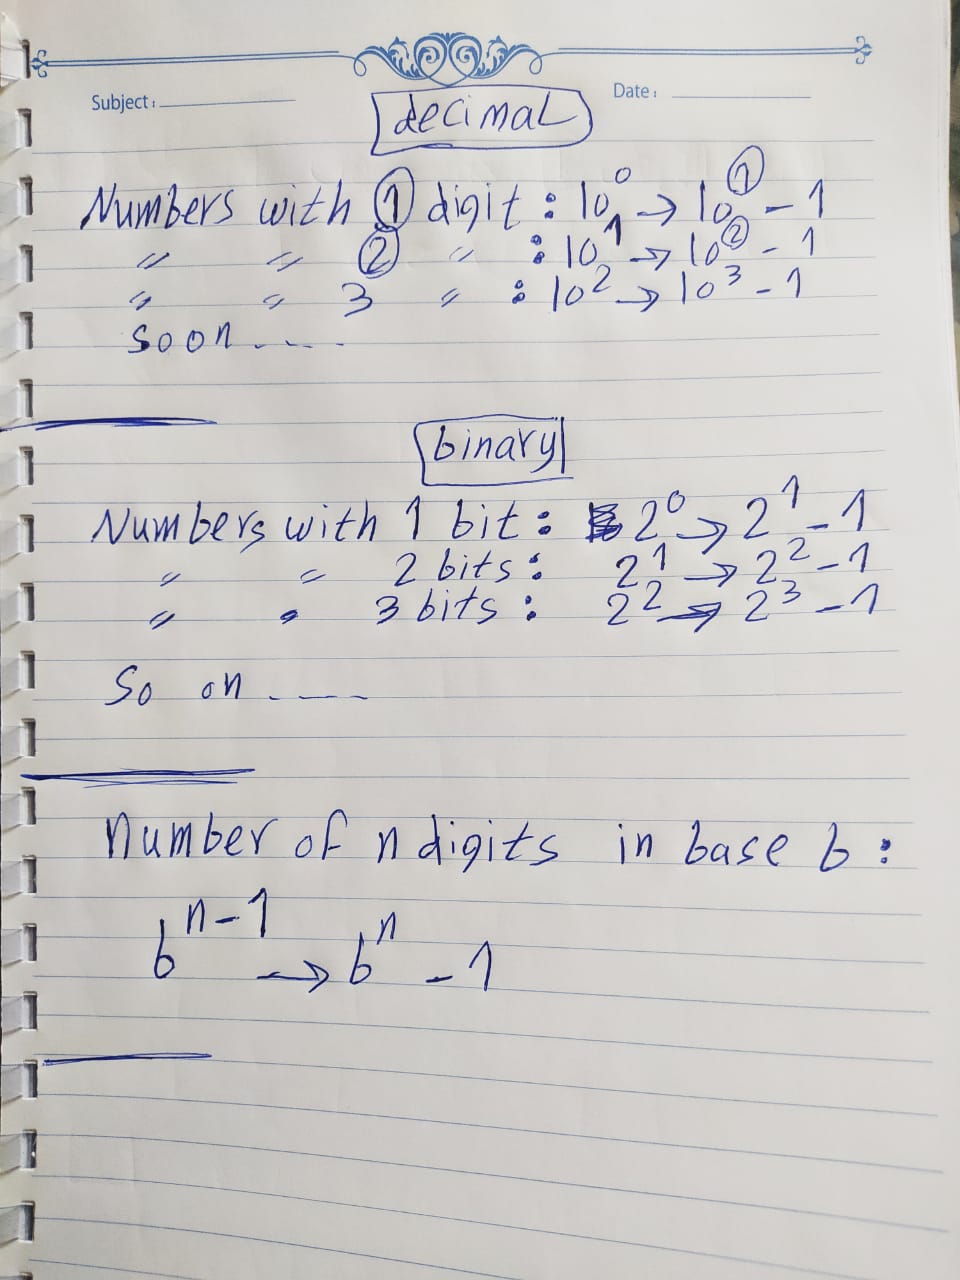 Subject:
Date:
decimal
Numbers with 1 digit : 10⁰ → 10¹ - 1
〃 〃 2 〃 : 10¹ → 10² - 1
〃 〃 3 〃 : 10² → 10³ - 1
so on ----
binary
Numbers with 1 bit : 2⁰ → 2¹ - 1
〃 〃 2 bits : 2¹ → 2² - 1
〃 〃 3 bits : 2² → 2³ - 1
So on ----
Number of n digits in base b :
bⁿ⁻¹ → bⁿ - 1